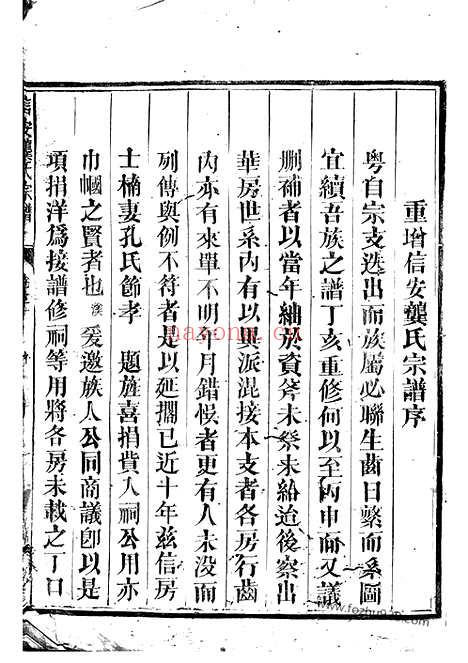 重增信安龔氏宗譜序
粤自宗支迭出而族屬必聯生齒日繁而系圖
宜續吾族之譜丁亥重修何以至丙申而又議
刪補者以當年紬放資斧未發未給迨後察出
華房世系内有以異派混接本支者各房行齒
内亦有來單不明年月錯悞者更有人未没而
列傳與例不符者是以延擱已近十年兹信房
士楠妻孔氏節孝 題旌喜捐貲人祠公用亦
巾幗之賢者也濮爰邀族人公同商議卽以是
項捐洋爲接譜修祠等用將各房未載之丁口
信安龔氏宗譜